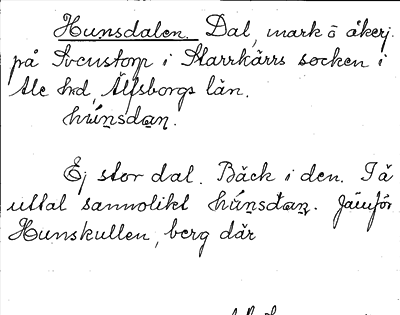 Hunsdalen. Dal, mark o åkerj.
på Svenstorp i Starrkärrs socken i
Ale hd, Älfsborgs län.
hú̄nsdan.
Ej stor dal. Bäck i den. Få
uttal sannolikt hú̄nsdan. Jämför
Hunskullen, berg där